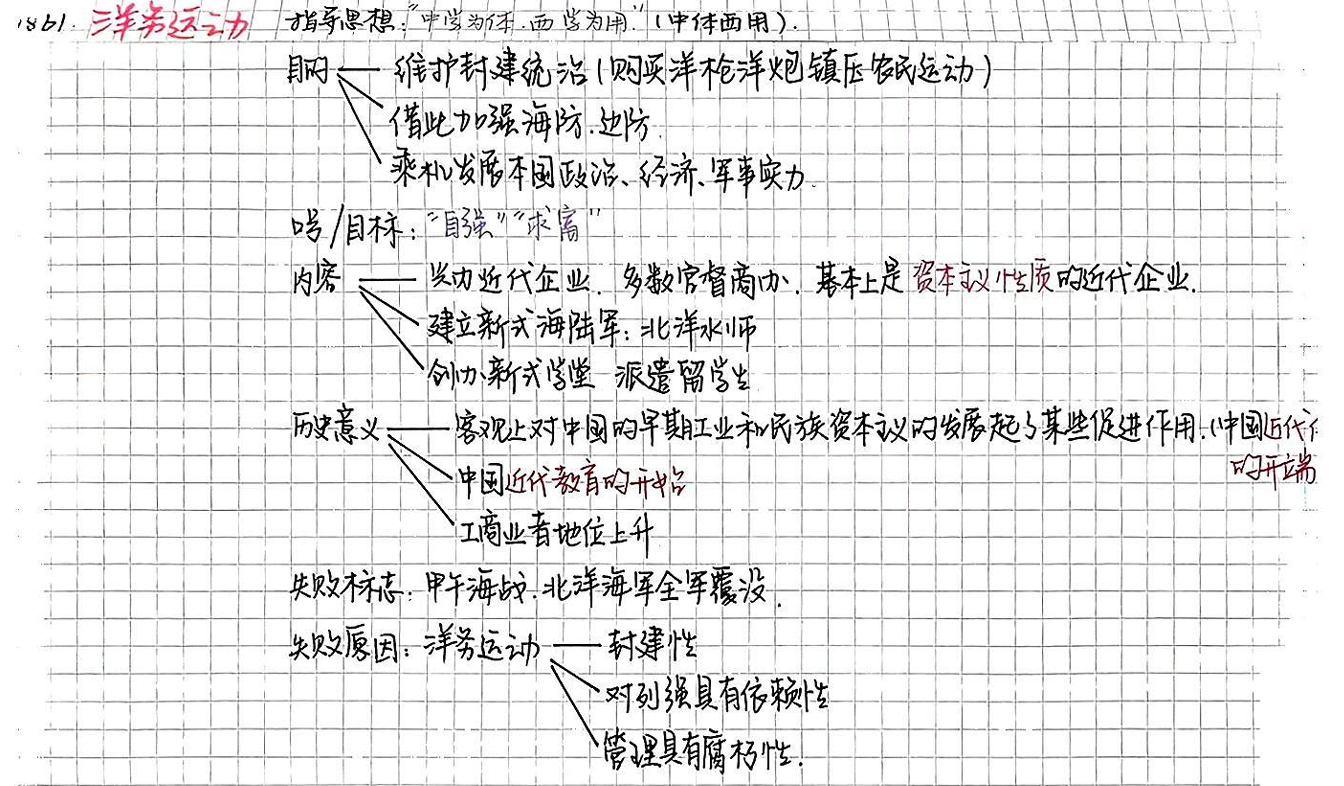 1861. 洋务运动 指导思想:"中学为体.西学为用."(中体西用).
目的 — 维护封建统治(购买洋枪洋炮镇压农民运动)
借此加强海防.边防.
乘机发展本国政治、经济、军事实力.
口号/目标:"自强""求富"
内容 — 兴办近代企业. 多数官督商办. 基本上是资本主义性质的近代企业.
建立新式海陆军:北洋水师
创办新式学堂 派遣留学生
历史意义 — 客观上对中国的早期工业和民族资本主义的发展起了某些促进作用.(中国近代
的开端
中国近代教育的开始
工商业者地位上升
失败标志:甲午海战.北洋海军全军覆没.
失败原因:洋务运动 — 封建性
对列强具有依赖性
管理具有腐朽性.